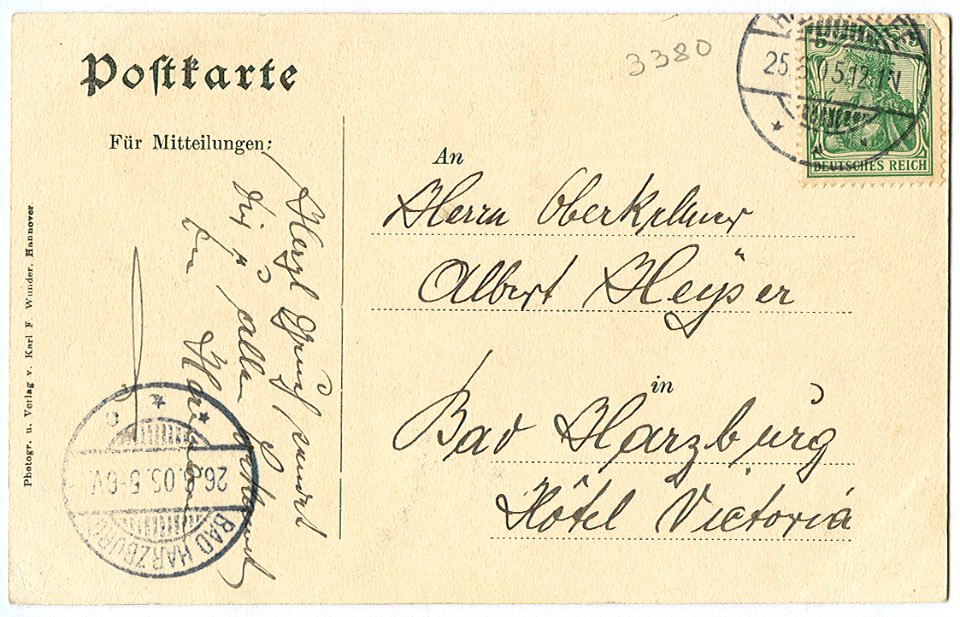 Postkarte
Für Mitteilungen:
Photogr. u. Verlag v. Karl F. Wunder, Hannover.
3380
5 5
25. 05.12-1N
DEUTSCHES REICH
An
Herrn Oberkellner
Albert Heyser
in
Bad Harzburg
Hôtel Victoria
Herzl Gruß sendet
Dir
BAD HARZBURG
26. .05.5-6V.